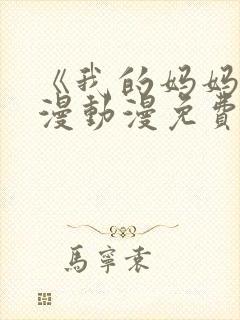 《我的妈妈
漫動漫免費
馬寧袁